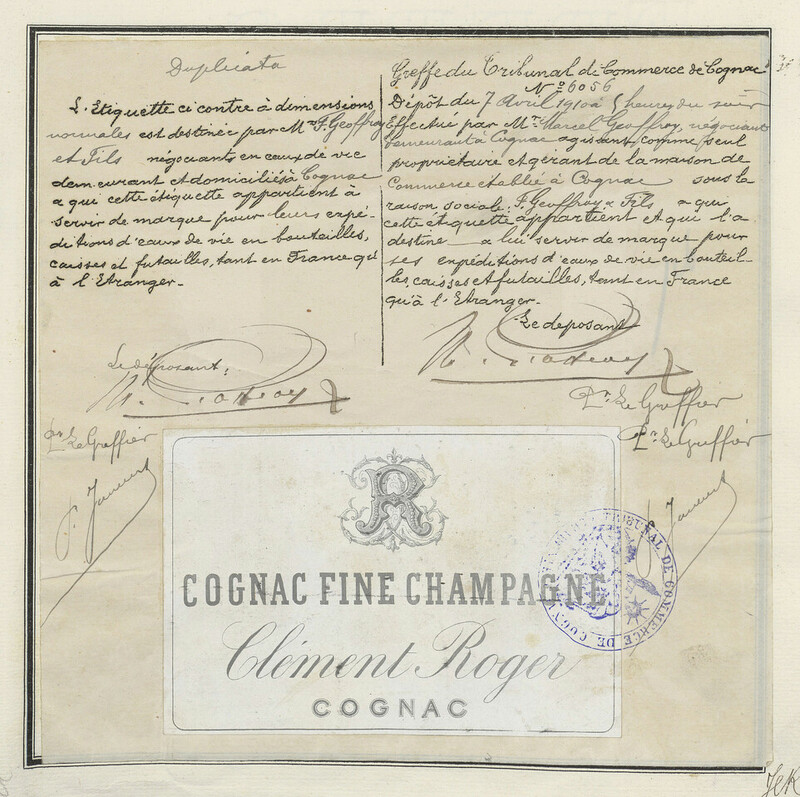 Duplicata
L'Etiquette ci contre à dimensions
normales est destinée par Mrs F. Geoffroy
et Fils négociants en eaux de vie
demeurant et domiciliés à Cognac
a qui cette étiquette appartient à
servir de marque pour leurs expé-
ditions d'eaux de vie en bouteilles,
caisses et futailles, tant en France qu'
à l'Etranger.-
Le déposant:
Pr. Le Greffier
Greffe du Tribunal de Commerce de Cognac
No 6056
Dépôt du 7 Avril 1910 à 5 heures du soir
Effectué par Mr. Marcel Geoffroy, négociant
demeurant à Cognac agissant comme seul
propriétaire et gérant de la maison de
Commerce établie à Cognac sous la
raison sociale: F. Geoffroy & Fils a qui
cette étiquette appartient et qui l'a
destine a lui servir de marque pour
ses expéditions d'eaux de vie en bouteil-
les, caisses et futailles, tant en France
qu'à l'Etranger.-
Le deposant
Pr. Le Greffier
Pr. Le Greffier
R
COGNAC FINE CHAMPAGNE
Clément Roger
COGNAC
TRIBUNAL DE COMMERCE DE COGNAC